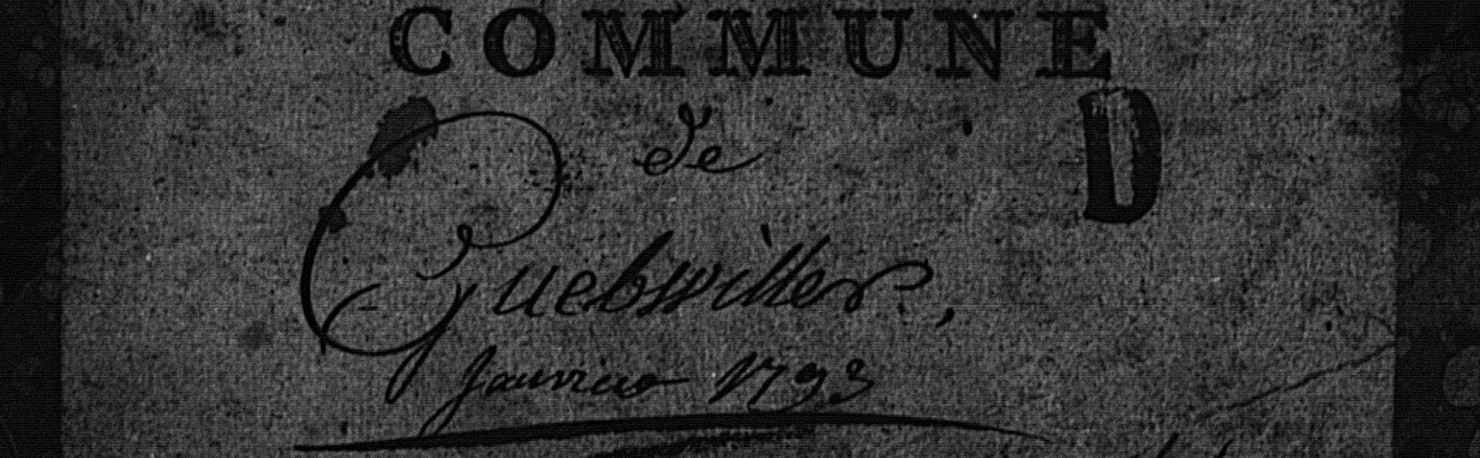 COMMUNE
de
D
Guebwiller,
Janvier 1793